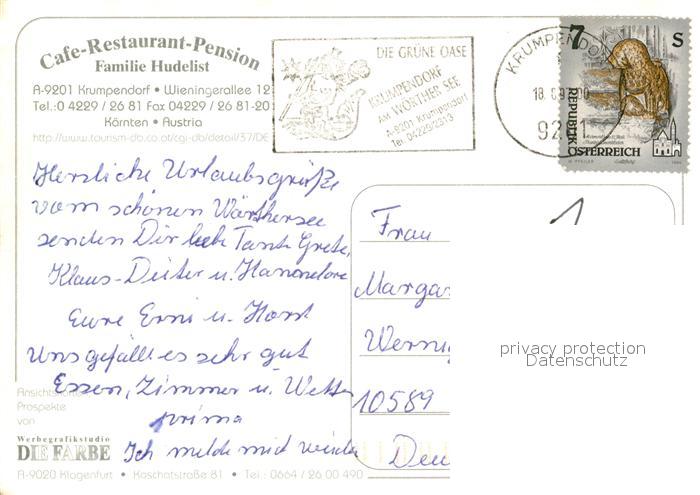 Cafe-Restaurant-Pension
Familie Hudelist
A-9201 Krumpendorf • Wieningerallee 12
Tel.: 0 4229 / 26 81 Fax 04229 / 26 81-20
Kärnten • Austria
http://www.tourism-db.co.at/cgi-db/detail/37/DE
DIE GRÜNE OASE
KRUMPENDORF
AM WÖRTHER SEE
A-9201 Krumpendorf
Tel. 04229/2313
KRUMPENDORF
18.
92 1
7 S
REPUBLIK
ÖSTERREICH
Herzliche Urlaubsgrüße
vom schönen Wörthersee
senden Dir liebe Tante Grete,
Klaus-Dieter u. Hannelore
Eure Erni u. Horst
Uns gefällt es sehr gut
Essen, Zimmer u. Wetter
prima
Ich melde mich wieder
1
Frau
Margar
Werni
10589
Deu
privacy protection
Datenschutz
Ansichtskarten
Prospekte
von
Werbegrafikstudio
DIE FARBE
A-9020 Klagenfurt • Koschatstraße 81 • Tel.: 0664 / 26 00 490